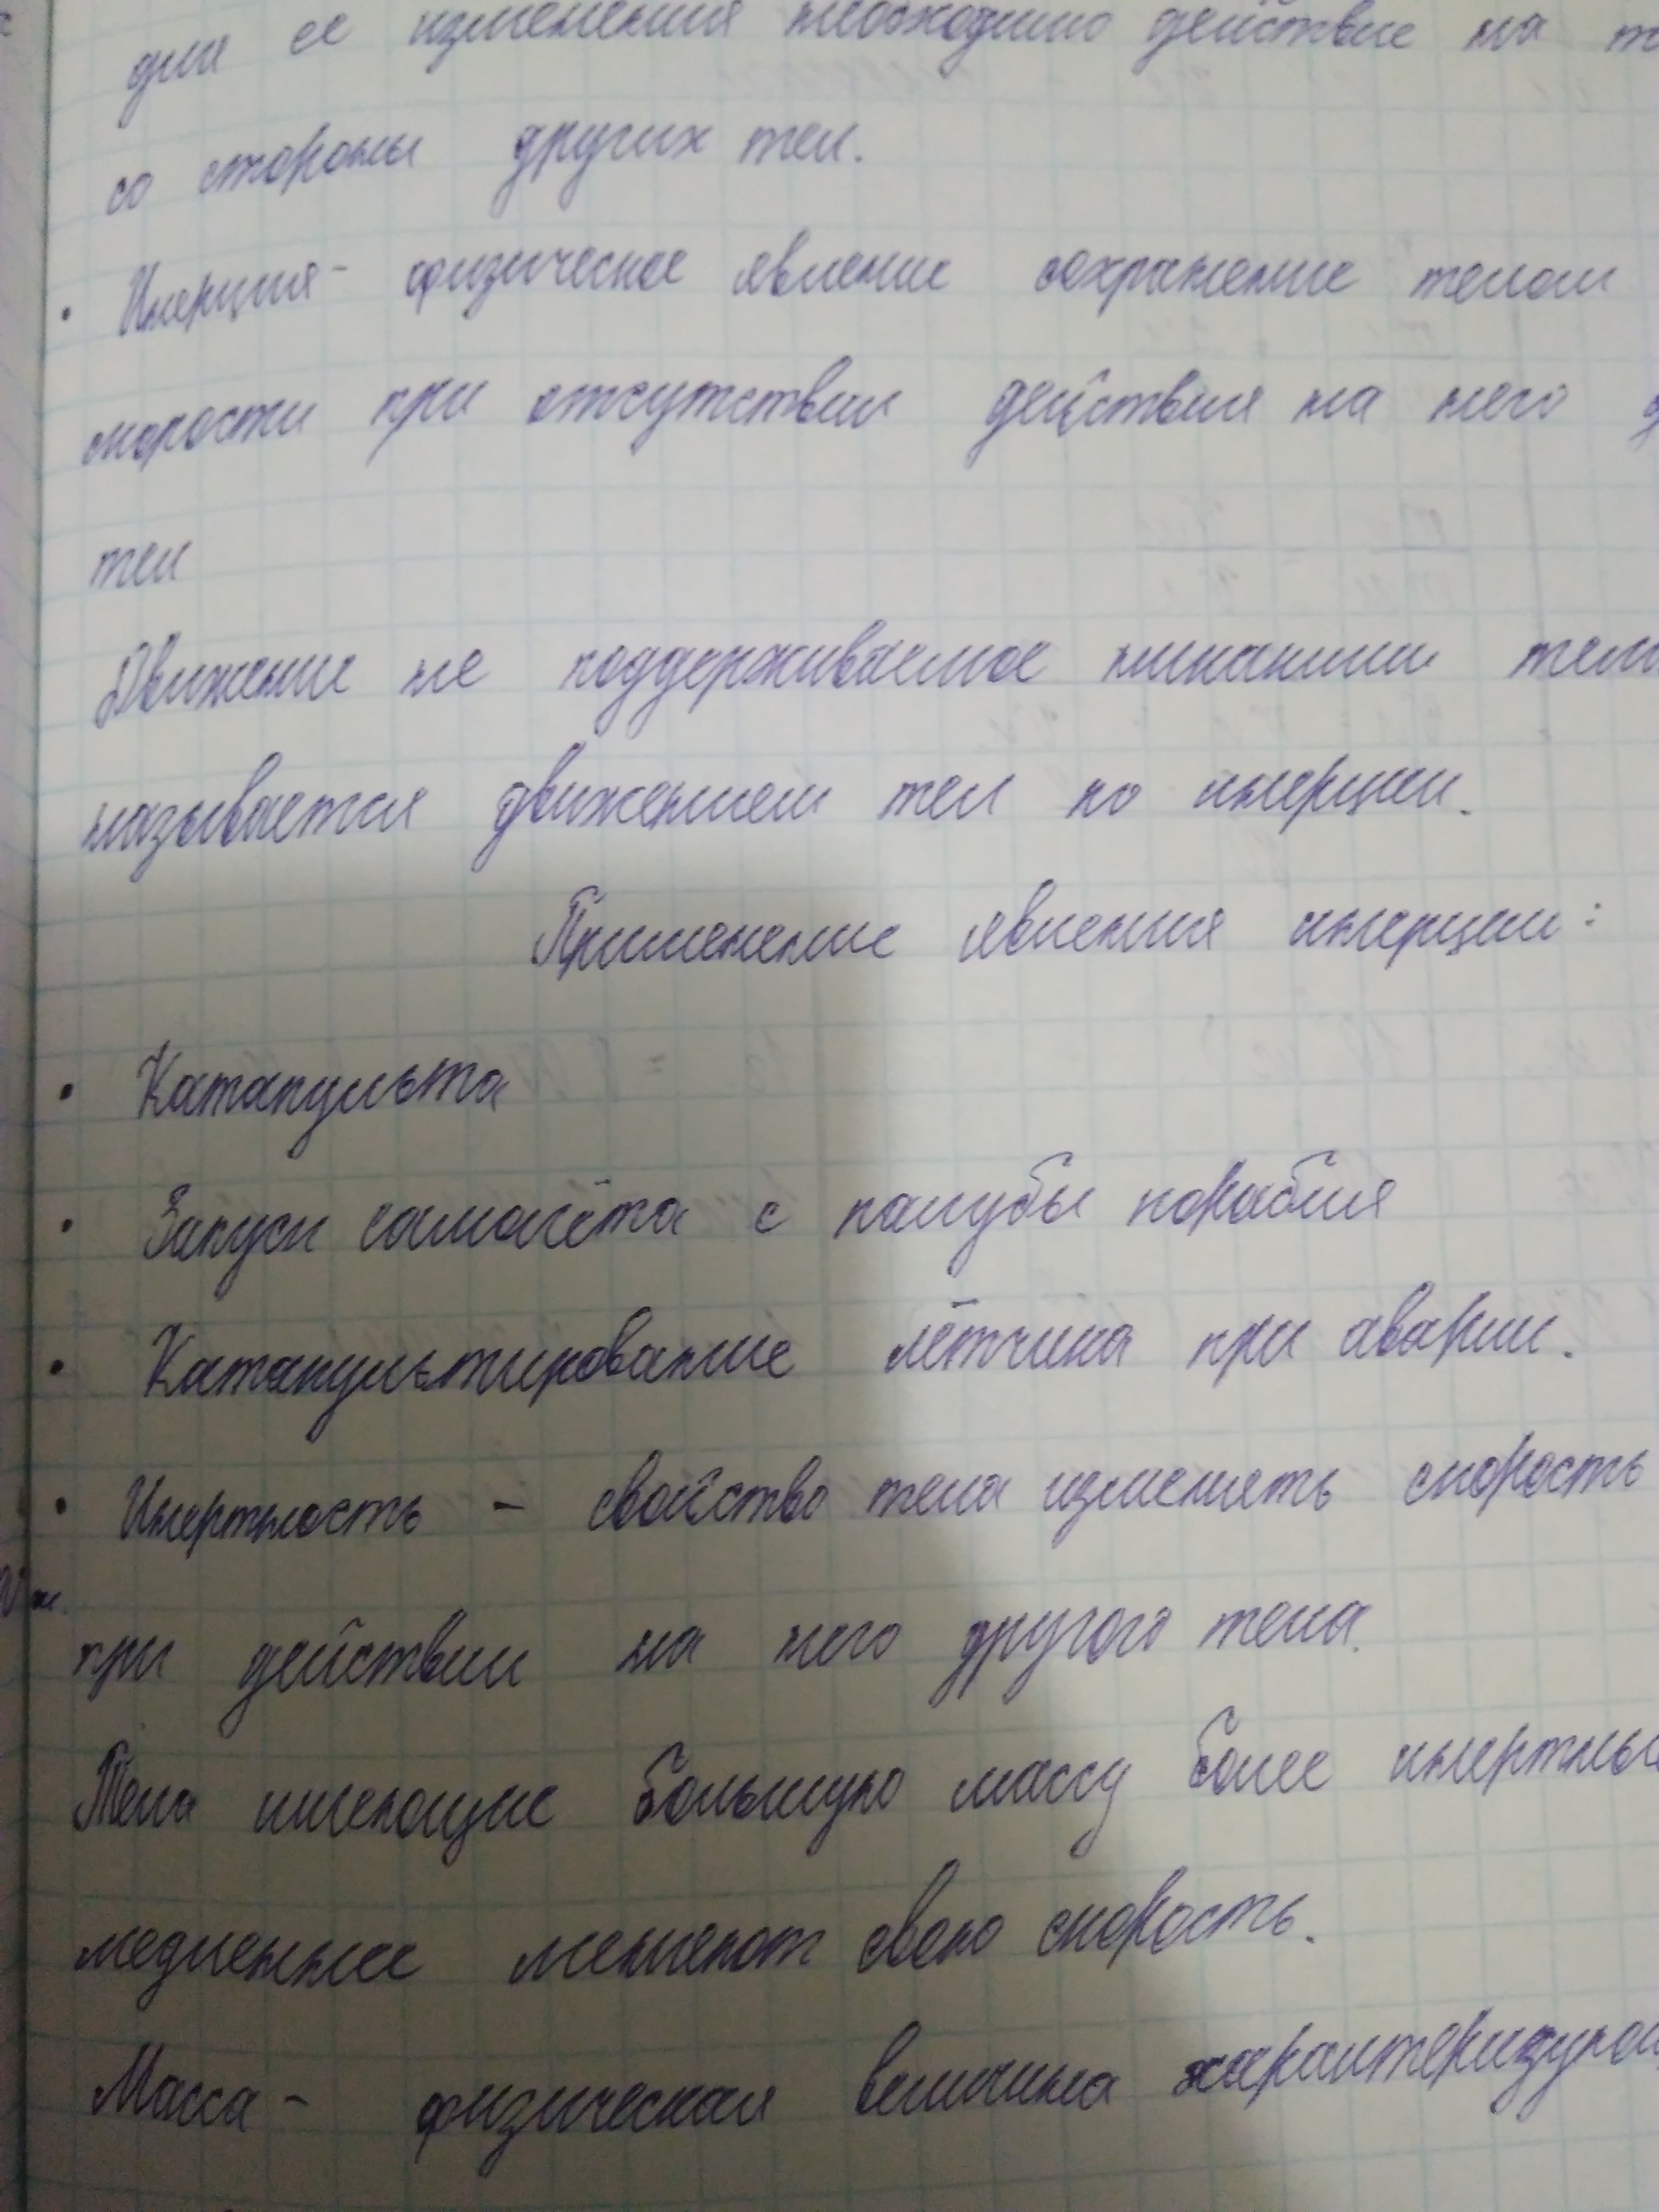 для ее изменения необходимо действие на
со стороны других тел.
• Инерция - физическое явление сохранение телом
скорости при отсутствии действия на него
тел
Движение не поддерживаемое никакими тела
называется движением тел по инерции.
Применение явления инерции:
• Катапульта
• Запуск самолёта с палубы корабля
• Катапультирование лётчика при аварии.
• Инертность - свойство тела изменять скорость
при действии на него другого тела.
Тела имеющие большую массу более инертны
медленнее меняют свою скорость.
Масса - физическая величина характеризующ